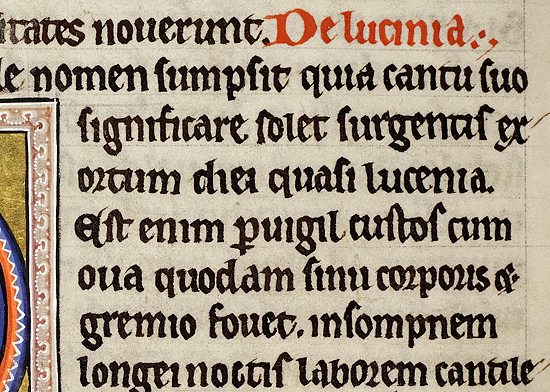 itates nouerunt. De lucinia.
le nomen sumpsit quia cantu suo
significare solet surgentis ex
ortum diei quasi lucenia.
Est enim ꝑuigil custos cum
oua quodam sinu corporis ⁊
gremio fouet. insompnem
longe noctis laborem cantile